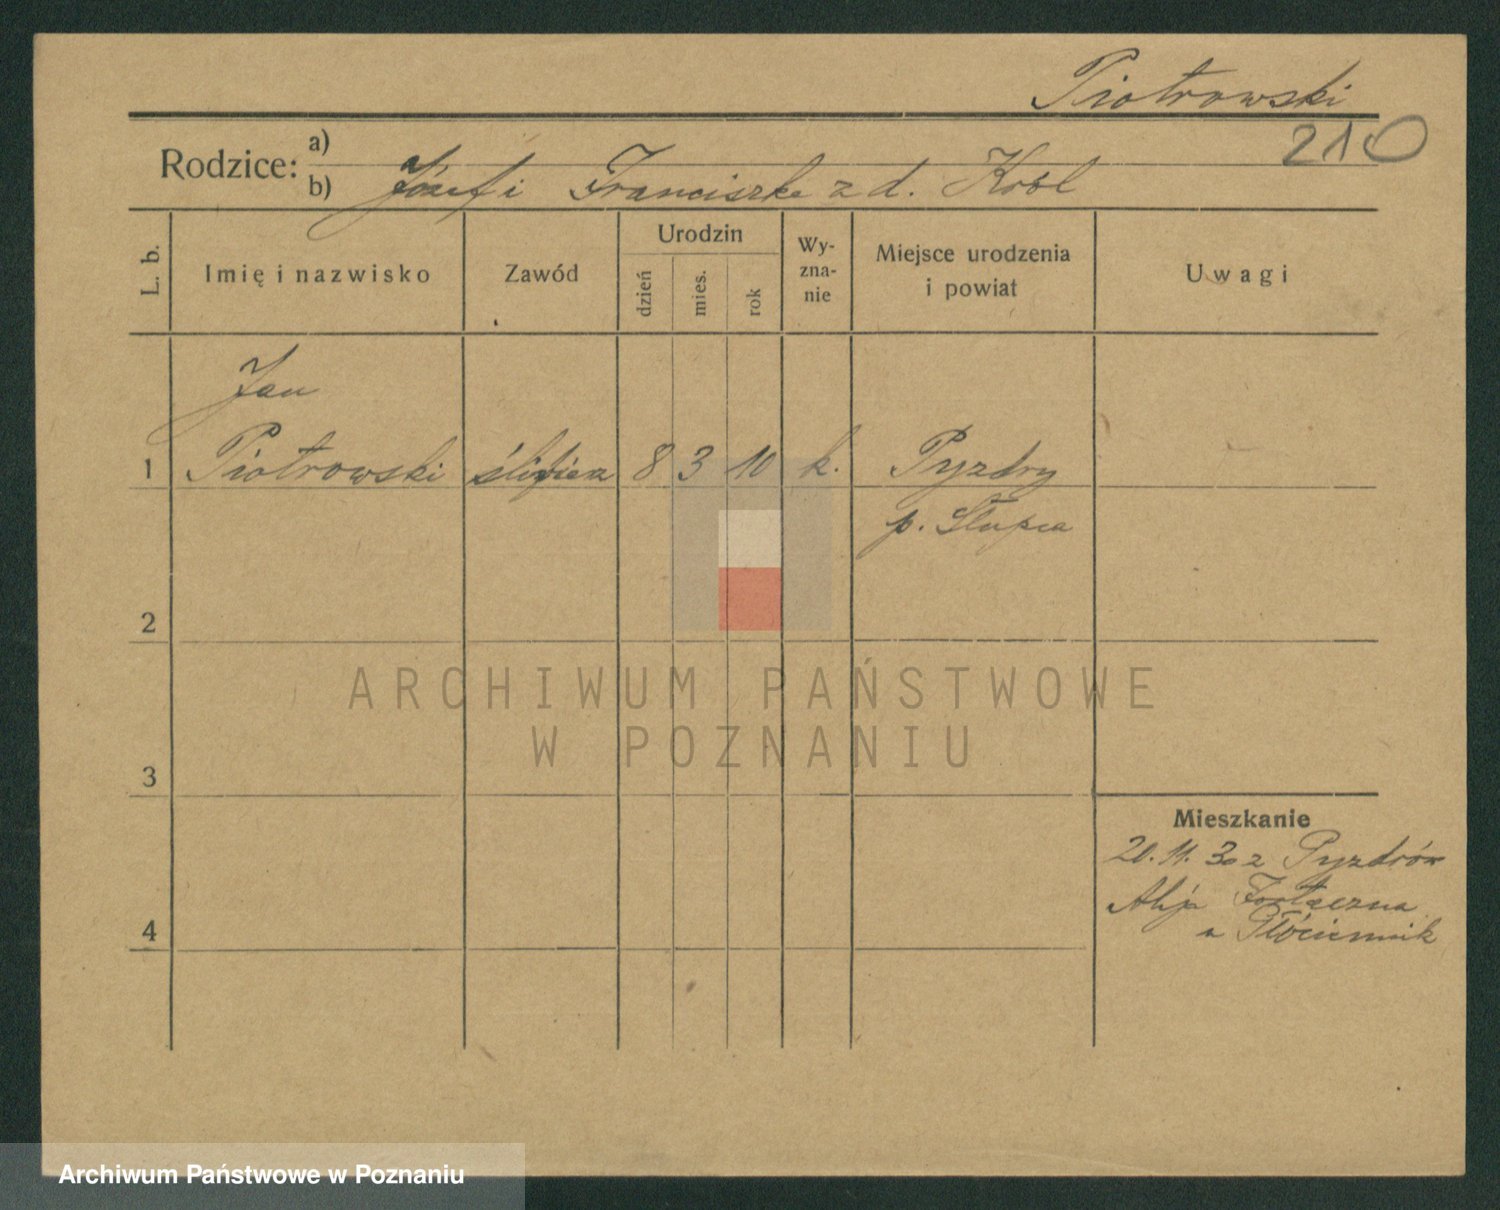 Piotrowski
210
Rodzice:
a)
b) Józef i Franciszka z d. Król
L. b.
Imię i nazwisko
Zawód
Urodzin
dzień
mies.
rok
Wy-
zna-
nie
Miejsce urodzenia
i powiat
Uwagi
Jan
1 Piotrowski ślifierz 8 3 10 k. Pyzdry
p. Słupca
2
3
4
Mieszkanie
20.11.30 z Pyzdrów
u
ARCHIWUM PAŃSTWOWE
W POZNANIU
Archiwum Państwowe w Poznaniu